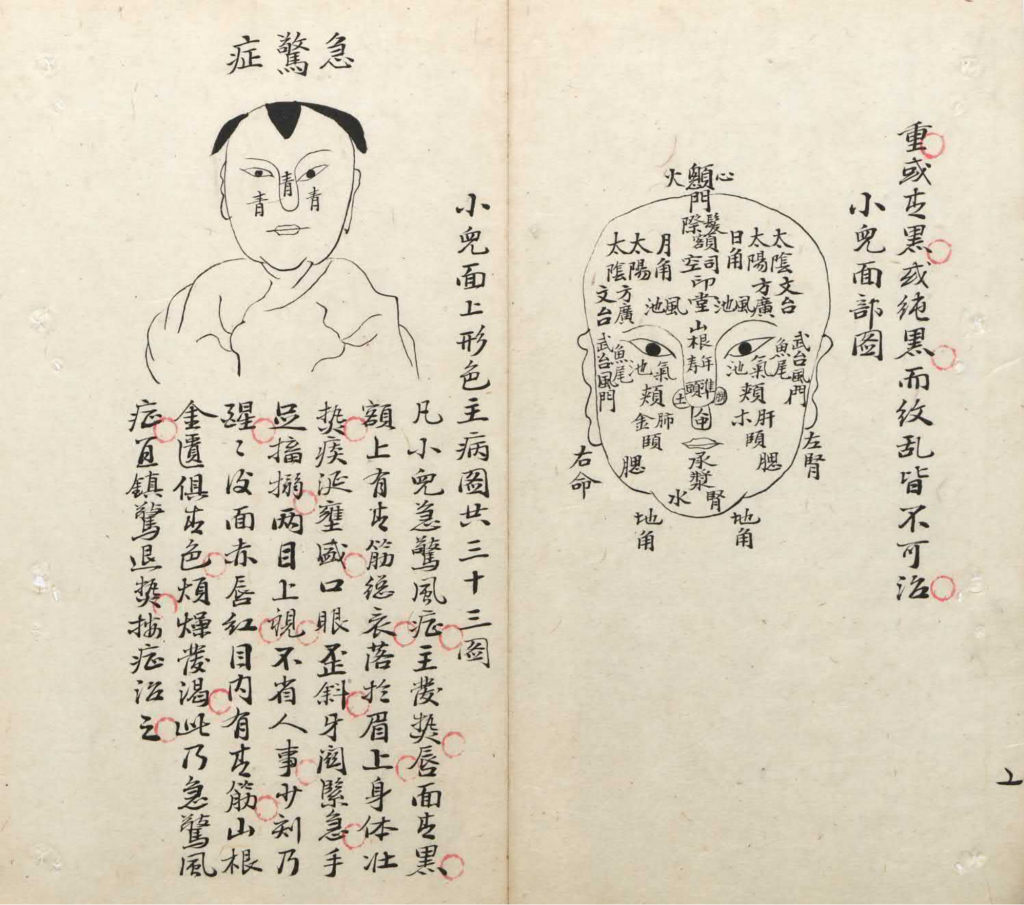 重或青黑或純黑而紋乱皆不可治
小兒面部圖
心
火
顖門
髮際
額
司空
印堂
日角
月角
太陽
太陽
太陰
太陰
方廣
方廣
文台
文台
風池
風池
山根
年壽
準頭
魚尾
魚尾
武台
武台
風門
風門
氣池
氣池
頰
頰
肝木
肺金
土
頤
頤
腮
腮
承漿
腎水
左腎
右命
地角
地角
小兒面上形色主病圖共三十三圖
急驚症
青
青
青
凡小兒急驚風症主發熱唇面青黑
額上有青筋総衣落於眉上身体壮
熱痰涎壅盛口眼歪斜牙関緊急手
足搐搦两目上視不省人事少刻乃
醒々後面赤唇紅目内有青筋山根
金匱俱青色煩燥發渴此乃急驚風
症宜鎮驚退熱按症治之